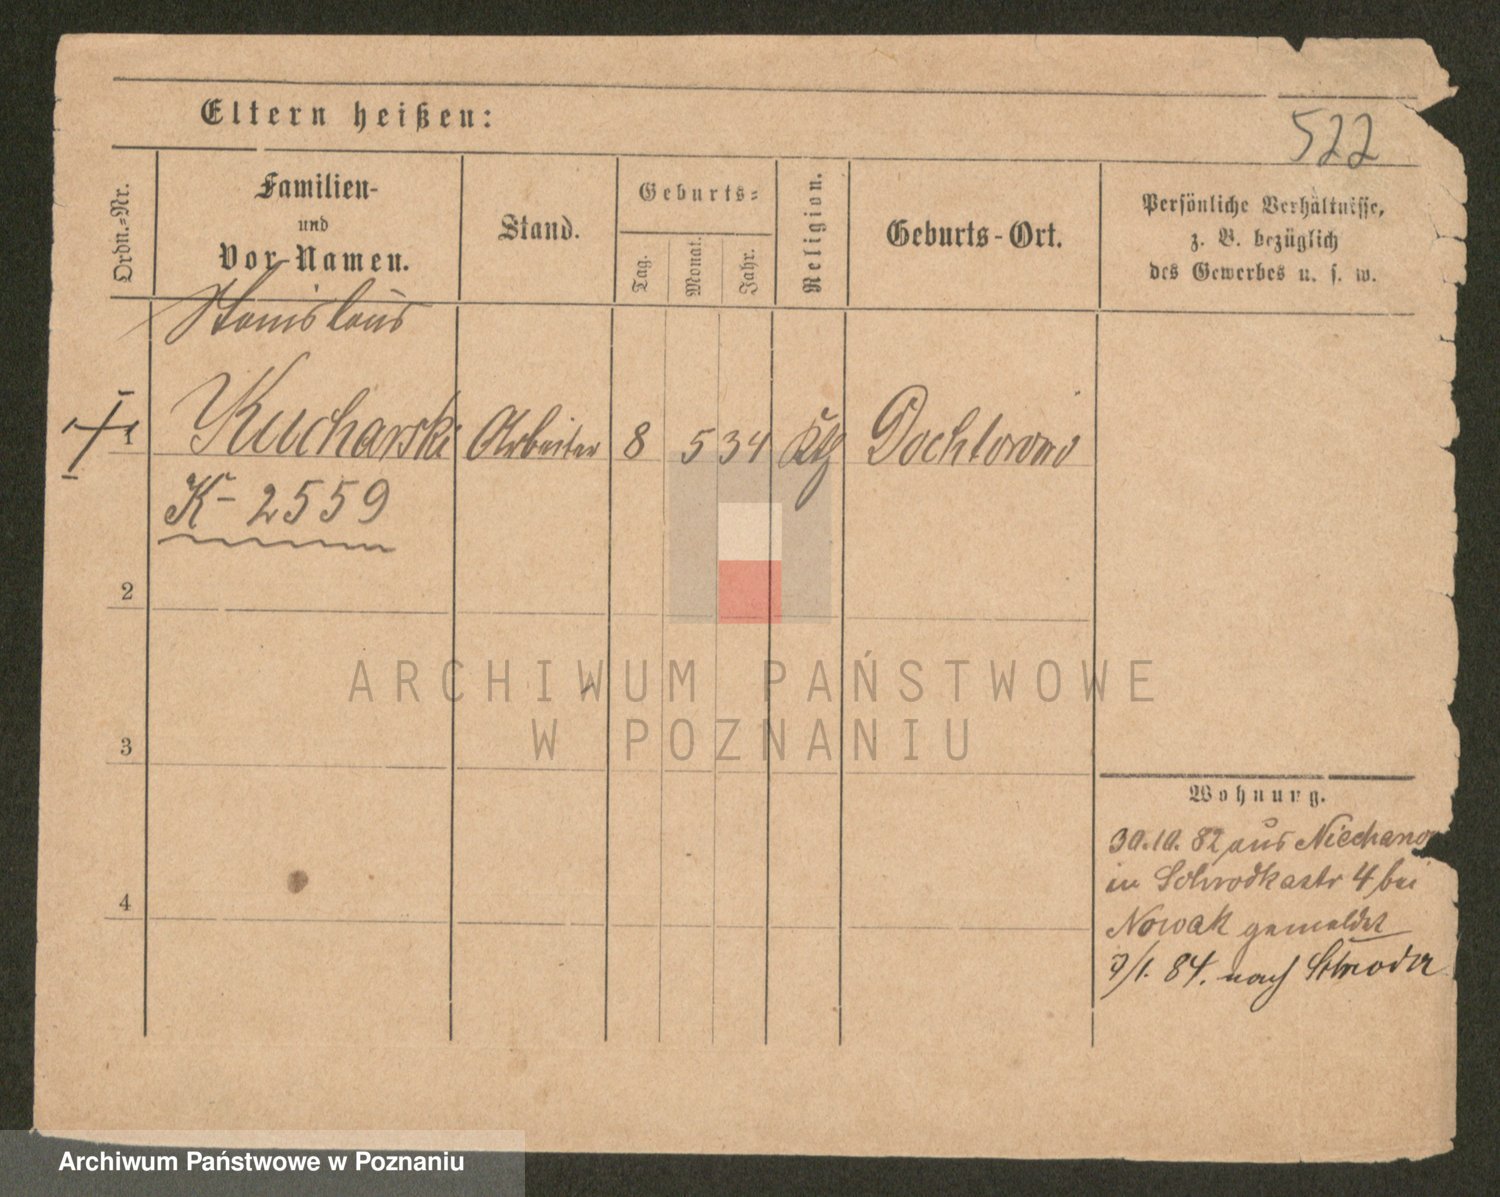 Eltern heißen:
522
Ordn.-Nr.
Familien-
und
Vor-Namen.
Stand.
Geburts-
Tag.
Monat.
Jahr.
Religion.
Geburts-Ort.
Persönliche Verhältnisse,
z. B. bezüglich
des Gewerbes u. s. w.
Stanislaus
1 Kucharski Arbeiter 8 5 34 Dochlorowo
K-2559
2
3
4
ARCHIWUM PAŃSTWOWE
W POZNANIU
Wohnung.
30.10.82 aus Niechanow
in Schrodkastr 4 bei
Nowak gemeldet
84. nach
Archiwum Państwowe w Poznaniu